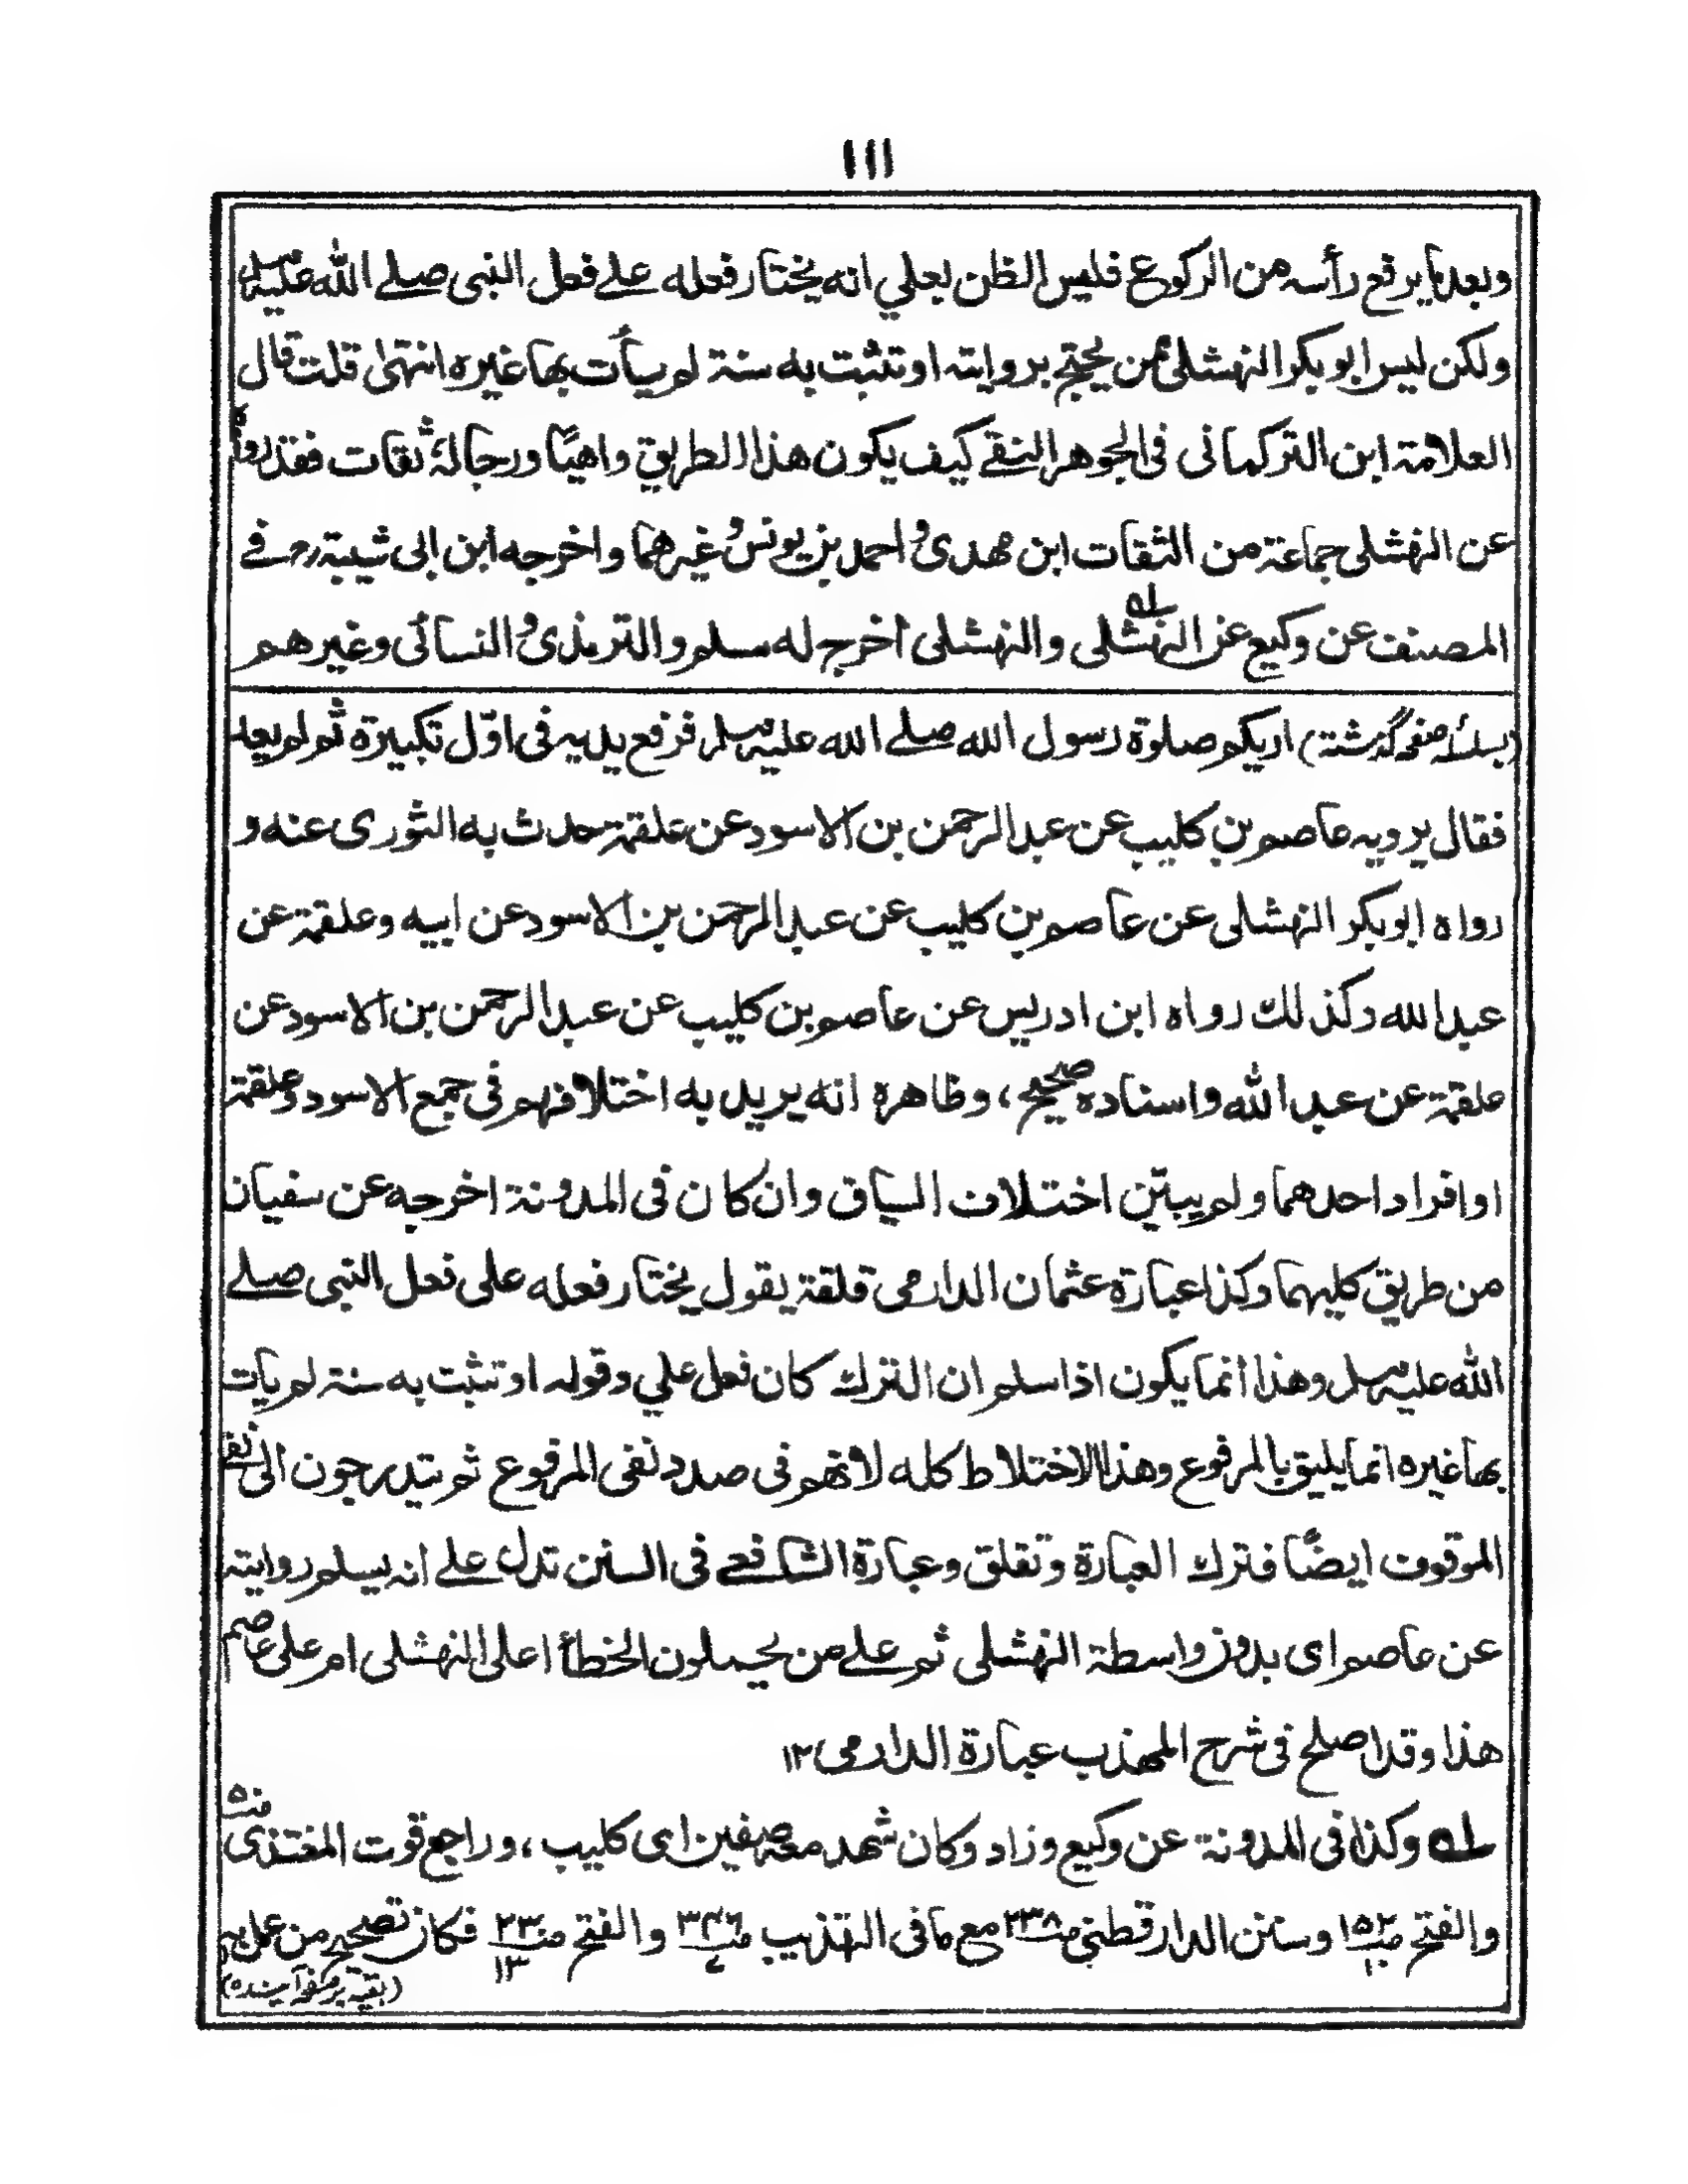 ۱۱۱
وبعدما يرفع رأسه من الركوع فليس الظن بعلي انه يختار فعله على فعل النبي صلى الله عليه وسلم
ولكن ليس ابو بكر النهشلي ممن يحتج بروايته او تثبت به سنة لم يأت بها غيره انتهى قلت قال
العلامة ابن التركماني في الجوهر النقي كيف يكون هذا الطريق واهيًا ورجاله ثقات فقد رواه
عن النهشلي جماعة من الثقات ابن مهدى و احمد بن يونس و غيرهما واخرجه ابن ابى شيبة رح فے
المصنف عن وكيع عن النهشلى والنهشلى اخرج له مسلم والترمذى و النسائى وغيرهم
(بسلسلہ صفحہ گذشتہ) اريكم صلوة رسول الله صلے الله عليه وسلم فرفع يديه فى اوّل تكبيرة ثم لم يعد
فقال يرويه عاصم بن كليب عن عبد الرحمن بن الاسود عن علقمة حدث به الثورى عنه و
رواه ابو بكر النهشلى عن عاصم بن كليب عن عبد الرحمن بن الاسود عن ابيه وعلقمة عن
عبد الله وكذلك رواه ابن ادريس عن عاصم بن كليب عن عبد الرحمن بن الاسود عن
علقمة عن عبد الله واسناده صحيح، وظاهره انه يريد به اختلافهم فى جمع الاسود وعلقمة
او افراد احدهما ولم يبيّن اختلاف السياق وان كان فى المدونة اخرجه عن سفيان
من طريق كليهما وكذا عبارة عثمان الدارمى قلقة يقول يختار فعله على فعل النبى صلے
الله عليه وسلم وهذا انما يكون اذا سلم ان الترك كان فعل علي وقوله او تثبت به سنة لم يات
بها غيره انما يليق بالمرفوع وهذا الاختلاط كله لانهم فى صدد نفى المرفوع ثم يتدرجون الى نفى
الموقوف ايضًا فنترك العبارة وتقلق وعبارة الشافعے فى السنن تدل علے انه يسلم روايته
عن عاصم اى بدون واسطة النهشلى ثم علے من يحملون الخطأ اعلى النهشلى ام على عاصم
هذا وقد اصلح فى شرح المهذب عبارة الدارمى ۱۲
لہ وكذا فى المدونة عن وكيع وزاد وكان شهد معه صفين اى كليب، وراجع قوت المغتذى ص۵۰
والفتح ص۱۵۲ ۱۰ وسنن الدارقطنى ص۲۳۸ مع ما فى التهذيب ص۳۴۶ ۷ والفتح ص۲۳ ۱۳ فكان تصحيح من عمل به
(بقیہ بر صفحہ آیندہ)